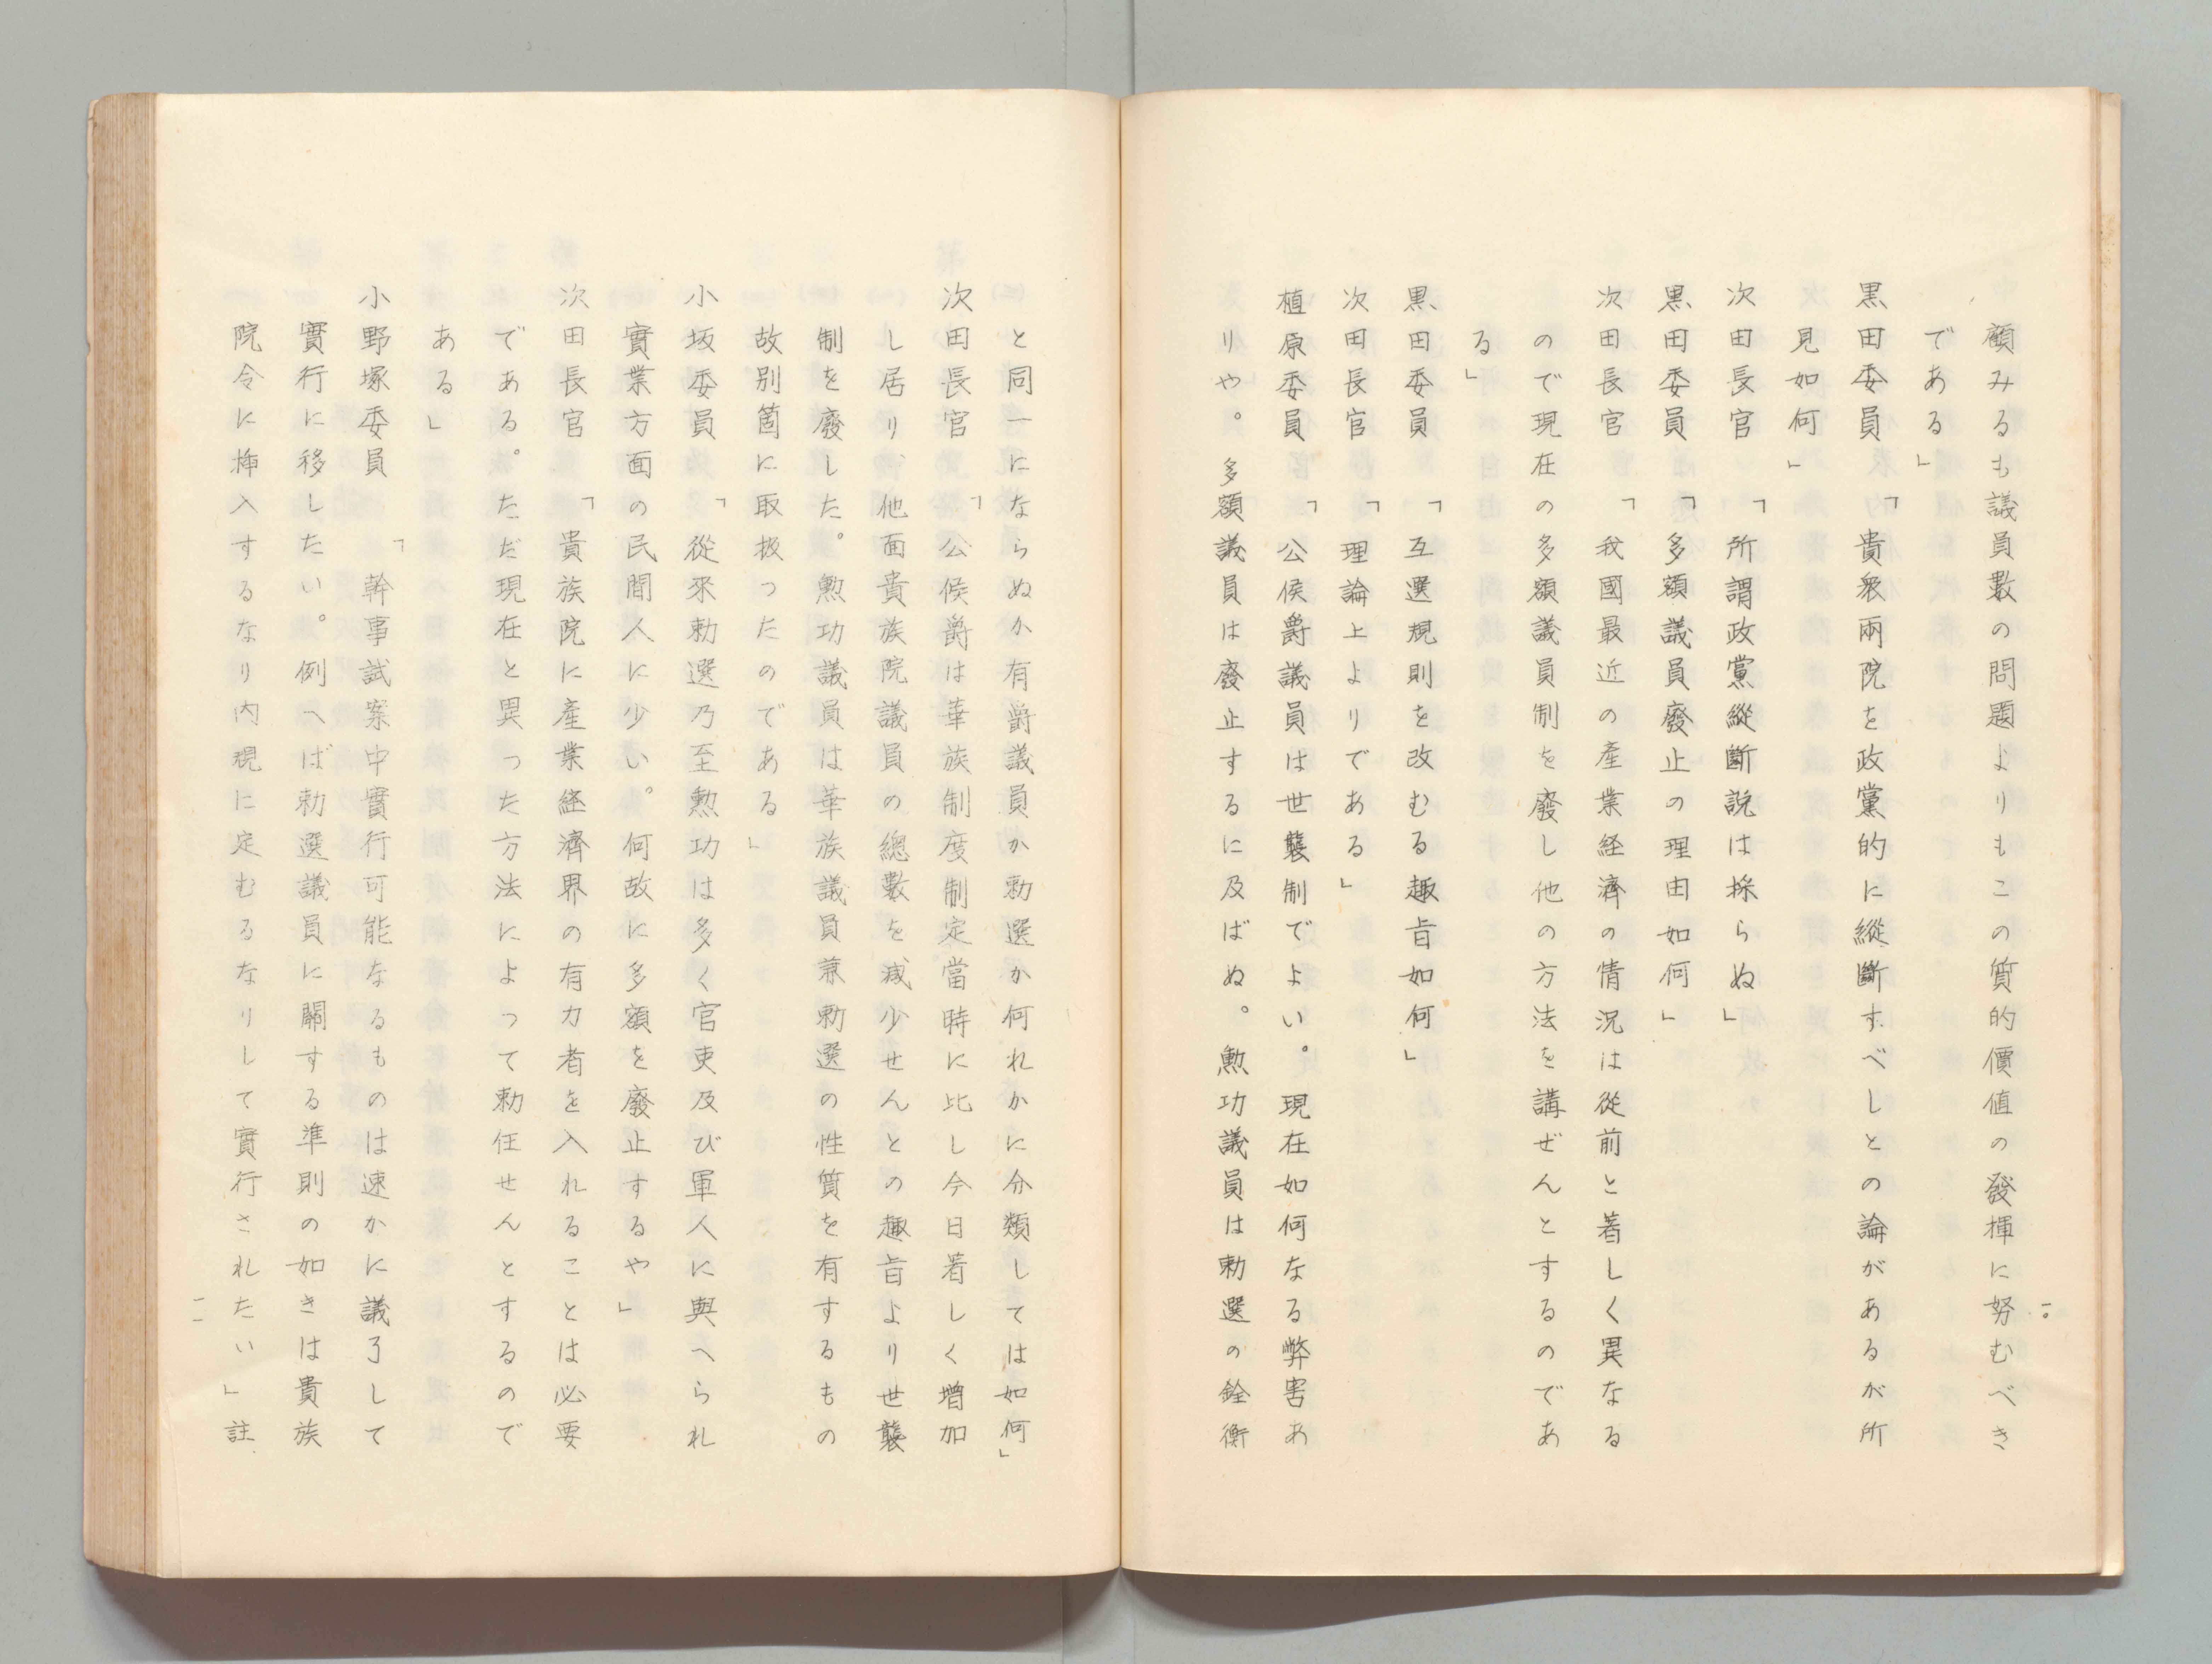 一〇
顧みるも議員數の問題よりもこの質的價値の發揮に努むべき
である」
黒田委員「貴衆兩院を政黨的に縱斷すべしとの論があるが所
見如何」
次田長官「所謂政黨縱斷説は採らぬ」
黒田委員「多額議員廢止の理由如何」
次田長官「我國最近の産業経濟の情況は從前と著しく異なる
ので現在の多額議員制を廢し他の方法を講ぜんとするのであ
る」
黒田委員「互選規則を改むる趣旨如何」
次田長官「理論上よりである」
植原委員「公侯爵議員は世襲制でよい。現在如何なる弊害あ
りや。多額議員は廢止するに及ばぬ。勲功議員は勅選の銓衡
と同一にならぬか有爵議員か勅選か何れかに分類しては如何」
次田長官「公侯爵は華族制度制定當時に比し今日著しく増加
し居り、他面貴族院議員の總數を減少せんとの趣旨より世襲
制を廢した。勲功議員は華族議員兼勅選の性質を有するもの
故別箇に取扱ったのである」
小坂委員「從來勅選乃至勲功は多く官吏及び軍人に與へられ
實業方面の民間人に少い。何故に多額を廢止するや」
次田長官「貴族院に産業経濟界の有力者を入れることは必要
である。ただ現在と異った方法によって勅任せんとするので
ある」
小野塚委員「幹事試案中實行可能なるものは速かに議了して
實行に移したい。例へば勅選議員に關する準則の如きは貴族
院令に挿入するなり内規に定むるなりして實行されたい」註
一一